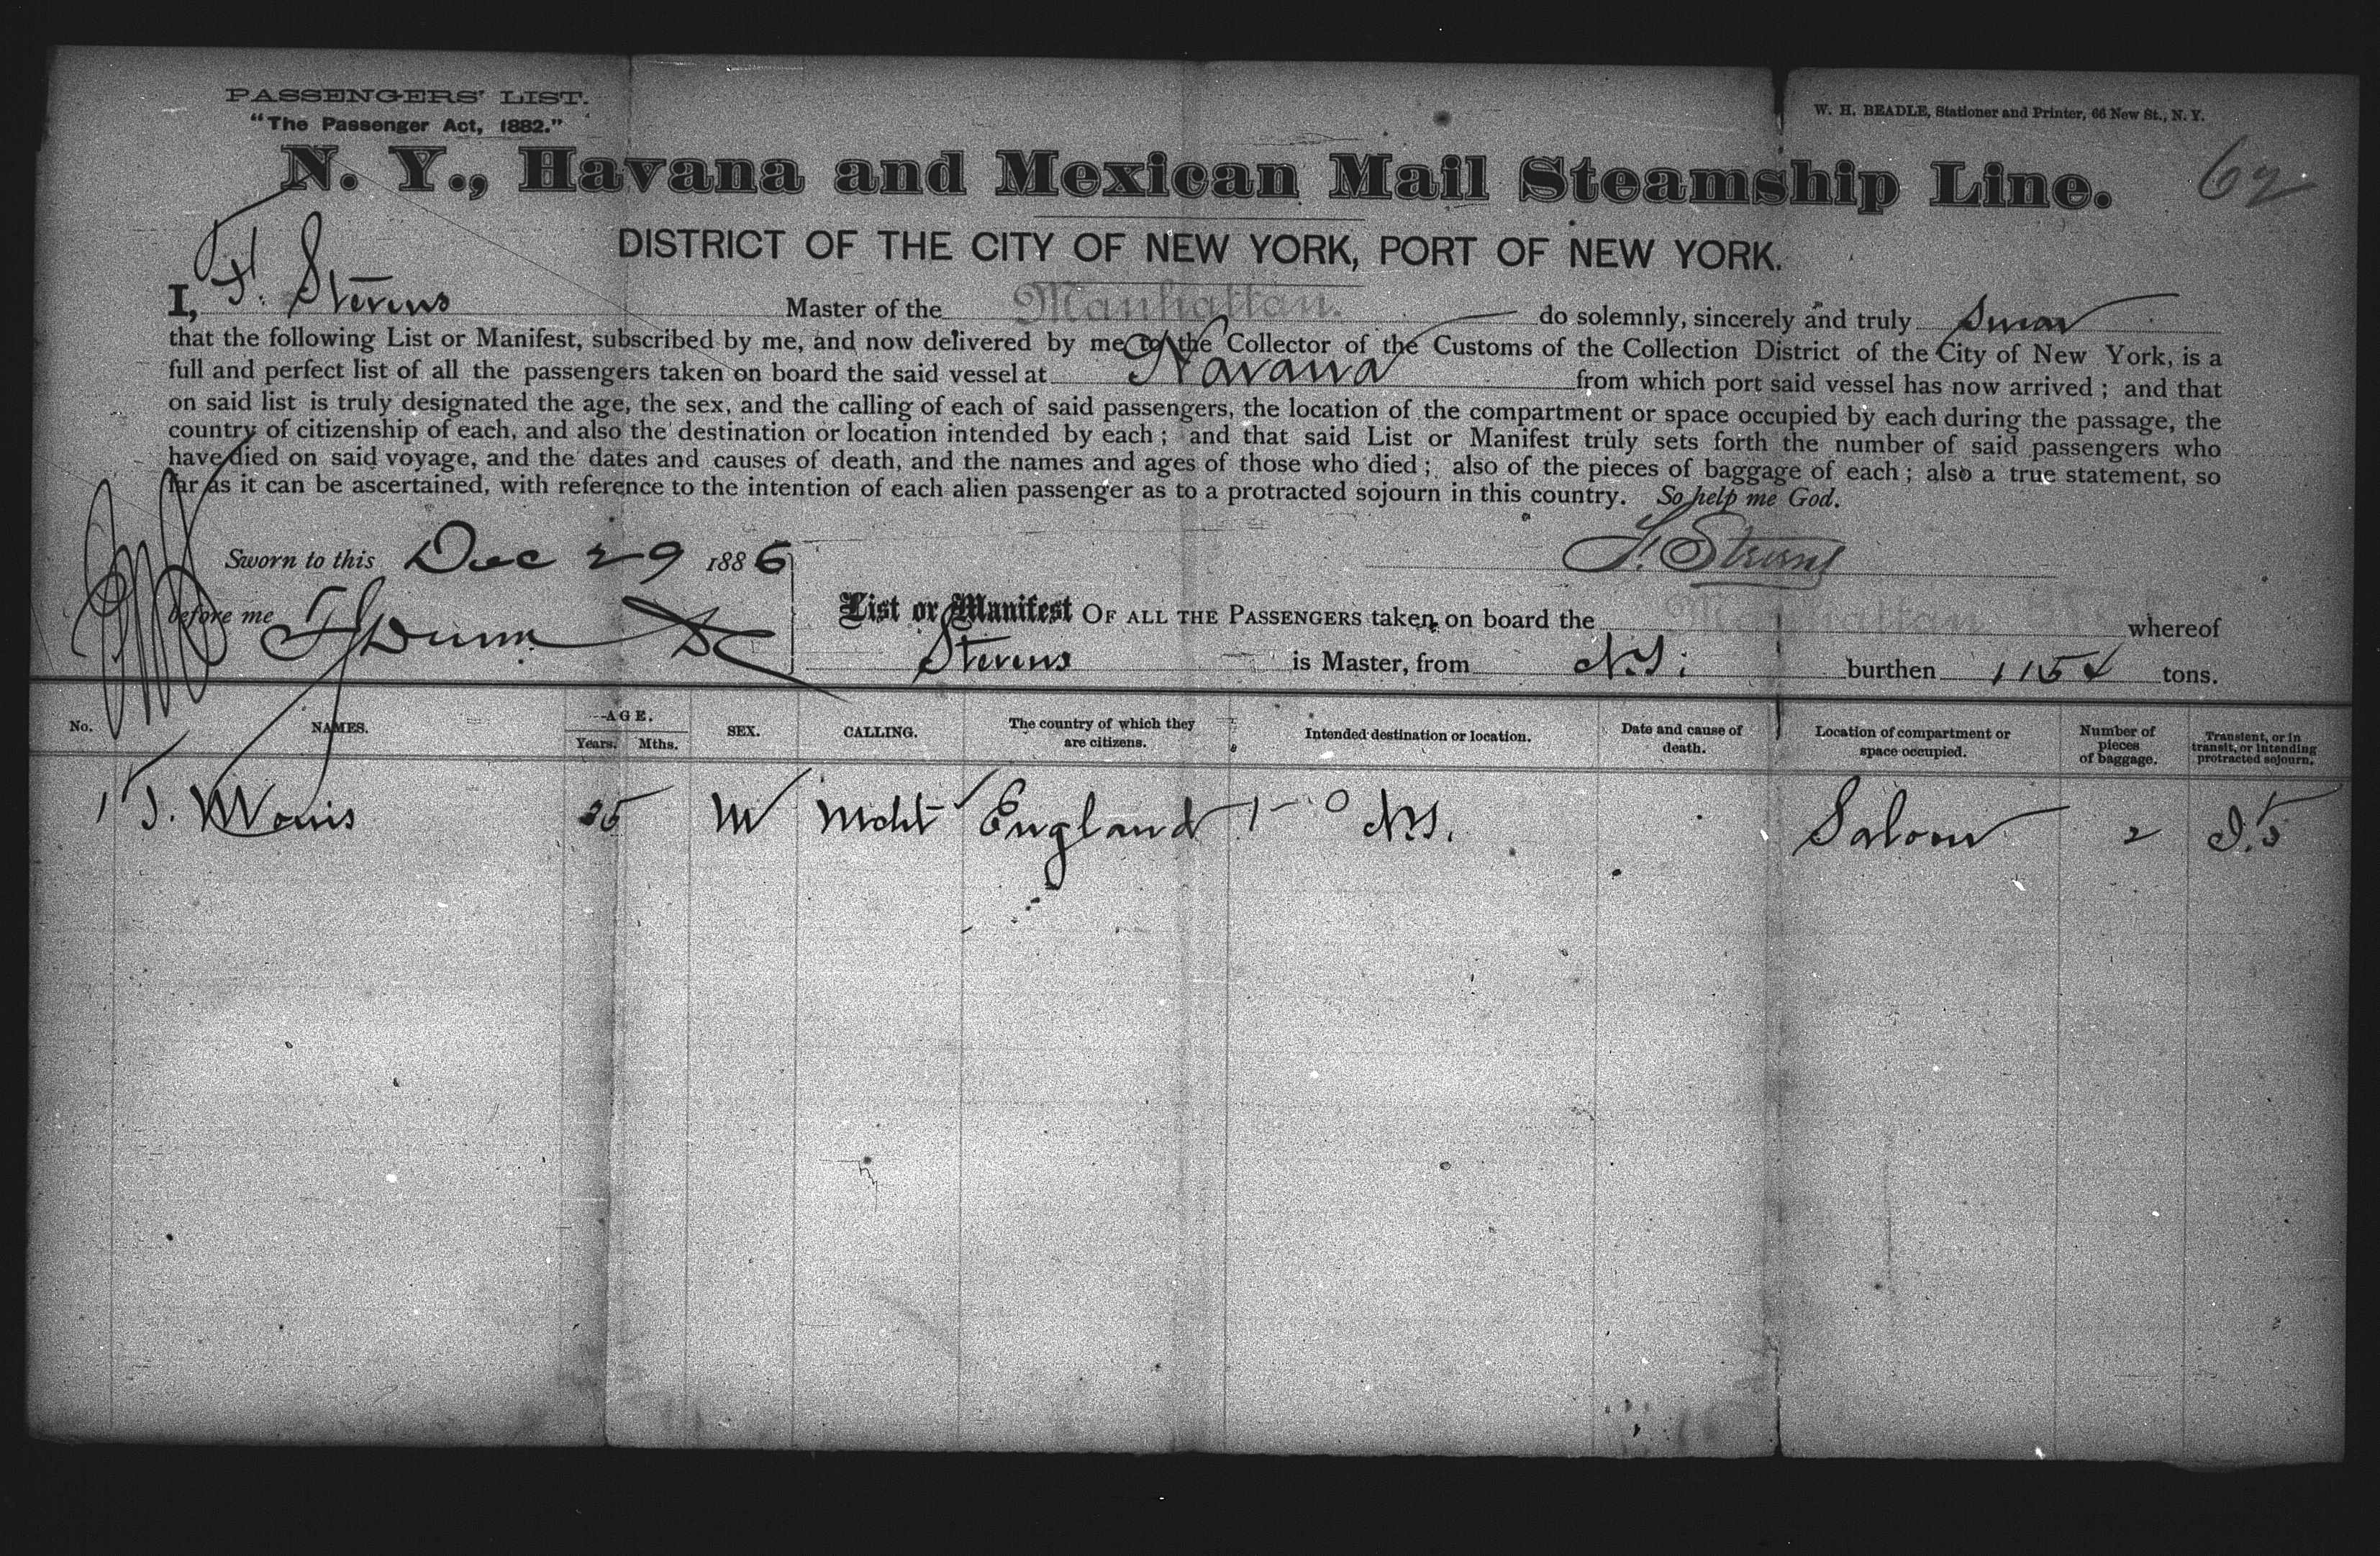 PASSENGERS' LIST.
"The Passenger Act, 1882."
W. H. BEADLE, Stationer and Printer, 66 New St., N. Y.
N. Y., Havana and Mexican Mail Steamship Line.
62
DISTRICT OF THE CITY OF NEW YORK, PORT OF NEW YORK.
I, F. Stevens Master of the Manhattan. do solemnly, sincerely and truly swear
that the following List or Manifest, subscribed by me, and now delivered by me to the Collector of the Customs of the Collection District of the City of New York, is a
full and perfect list of all the passengers taken on board the said vessel at Havana from which port said vessel has now arrived; and that
on said list is truly designated the age, the sex, and the calling of each of said passengers, the location of the compartment or space occupied by each during the passage, the
country of citizenship of each, and also the destination or location intended by each; and that said List or Manifest truly sets forth the number of said passengers who
have died on said voyage, and the dates and causes of death, and the names and ages of those who died; also of the pieces of baggage of each; also a true statement, so
far as it can be ascertained, with reference to the intention of each alien passenger as to a protracted sojourn in this country. So help me God.
Sworn to this Dec 29 1886
F. Stevens
before me
List or Manifest OF ALL THE PASSENGERS taken on board the Manhattan whereof
Stevens is Master, from N.Y. burthen 1154 tons.
No. NAMES. AGE. Years. Mths. SEX. CALLING. The country of which they are citizens. Intended destination or location. Date and cause of death. Location of compartment or space occupied. Number of pieces of baggage. Transient, or in transit, or intending protracted sojourn.
1 T. 35 M Mcht England N.Y. Saloon 2